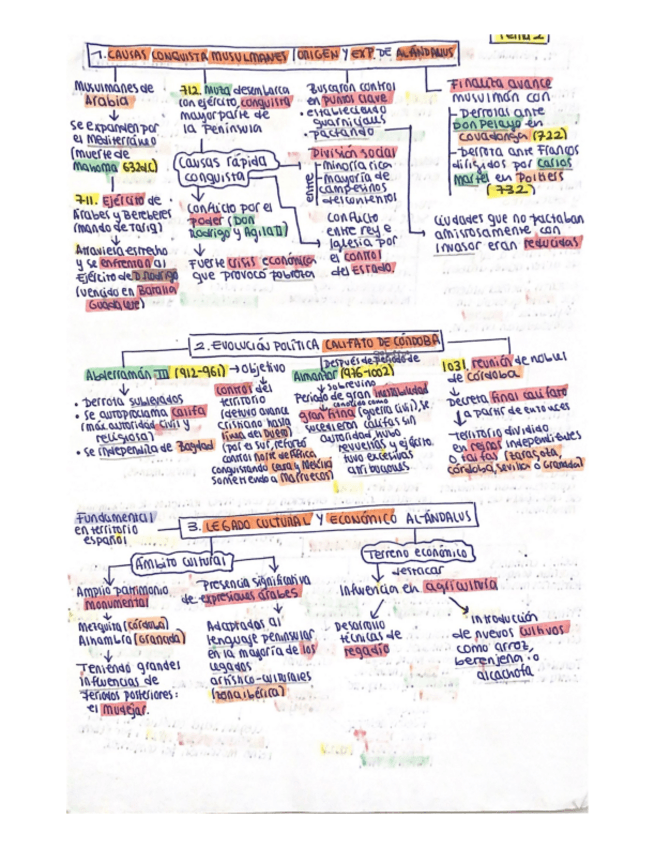 Tema 2
1. CAUSAS CONQUISTA MUSULMANES / ORIGEN Y EXP. DE AL-ÁNDALUS
Musulmanes de
Arabia
se expanden por
el Mediterráneo
(muerte de
Mahoma 632d.C)
711. Ejército de
Árabes y Bereberes
(mando de Tariq)
Atraviesa estrecho
y se enfrentan al
Ejército de D. Rodrigo
(vencido en Batalla
Guadalete)
712. Muza desembarca
con ejército, conquista
mayor parte de
la Península
Causas rápida
conquista
Conflicto por el
poder (Don
Rodrigo y Agila II)
Fuerte crisis económica
que provocó pobreza
Buscaron control
en puntos clave
• estableciendo
guarniciones
• pactando
División social
entre
minoría rica
mayoría de
campesinos
descontentos
Conflicto
entre rey e
Iglesia por
el control
del estado.
Finaliza avance
musulmán con
Derrotas ante
Don Pelayo en
Covadonga (722)
Derrota ante Francos
dirigidos por Carlos
Martel en Poitiers
(732)
Ciudades que no pactaban
amistosamente con
invasor eran reducidas
2. EVOLUCIÓN POLÍTICA CALIFATO DE CÓRDOBA
Abderramán III (912-961) → objetivo
• Derrota sublevados
• Se autoproclama califa
(máx autoridad civil y
religiosa)
• se independiza de Bagdad
control del
territorio
(detuvo avance
cristiano hasta
línea del Duero)
(por el sur, reforzó
control norte de África
conquistando Ceuta y Melilla
sometiendo a Marruecos)
Después de periodo de
Almanzor (976-1002)
sobrevino
Periodo de gran inestabilidad
conocido como
gran fitna (guerra civil), se
sucedieron califas sin
autoridad, hubo
revueltas y ejército
tuvo excesivas
atribuciones
1031, reunión de nobles
de Córdoba
Decreta final califato
a partir de entonces
Territorio dividido
en reinos independientes
o taifas (Zaragoza,
Córdoba, Sevilla o Granada)
Fundamental
en territorio
español
3. LEGADO CULTURAL Y ECONÓMICO AL-ÁNDALUS
Ámbito cultural
Terreno económico
destacar
Amplio patrimonio
monumental
Mezquita (Córdoba)
Alhambra (Granada)
Teniendo grandes
influencias de
periodos posteriores:
el mudéjar.
Presencia significativa
de expresiones árabes.
Adaptadas al
lenguaje peninsular
en la mayoría de los
legados
artístico-culturales
(zona ibérica)
Influencia en agricultura
Desarrollo
técnicas de
regadío
Introducción
de nuevos cultivos
como arroz,
berenjena o
alcachofa